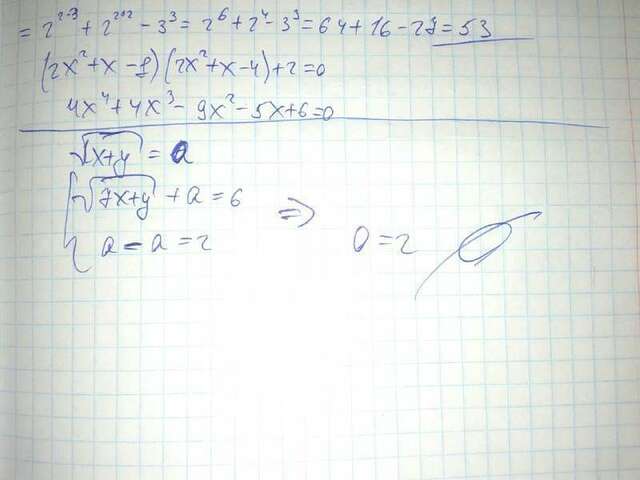 = 2^{2·3} + 2^{2·2} - 3^3 = 2^6 + 2^4 - 3^3 = 64 + 16 - 27 = 53
(2x^2 + x - 1)(2x^2 + x - 4) + 2 = 0
4x^4 + 4x^3 - 9x^2 - 5x + 6 = 0
√(7x+y) = a
{ √(7x+y) + a = 6
a - a = 2 ⇒ 0 = 2 ∅